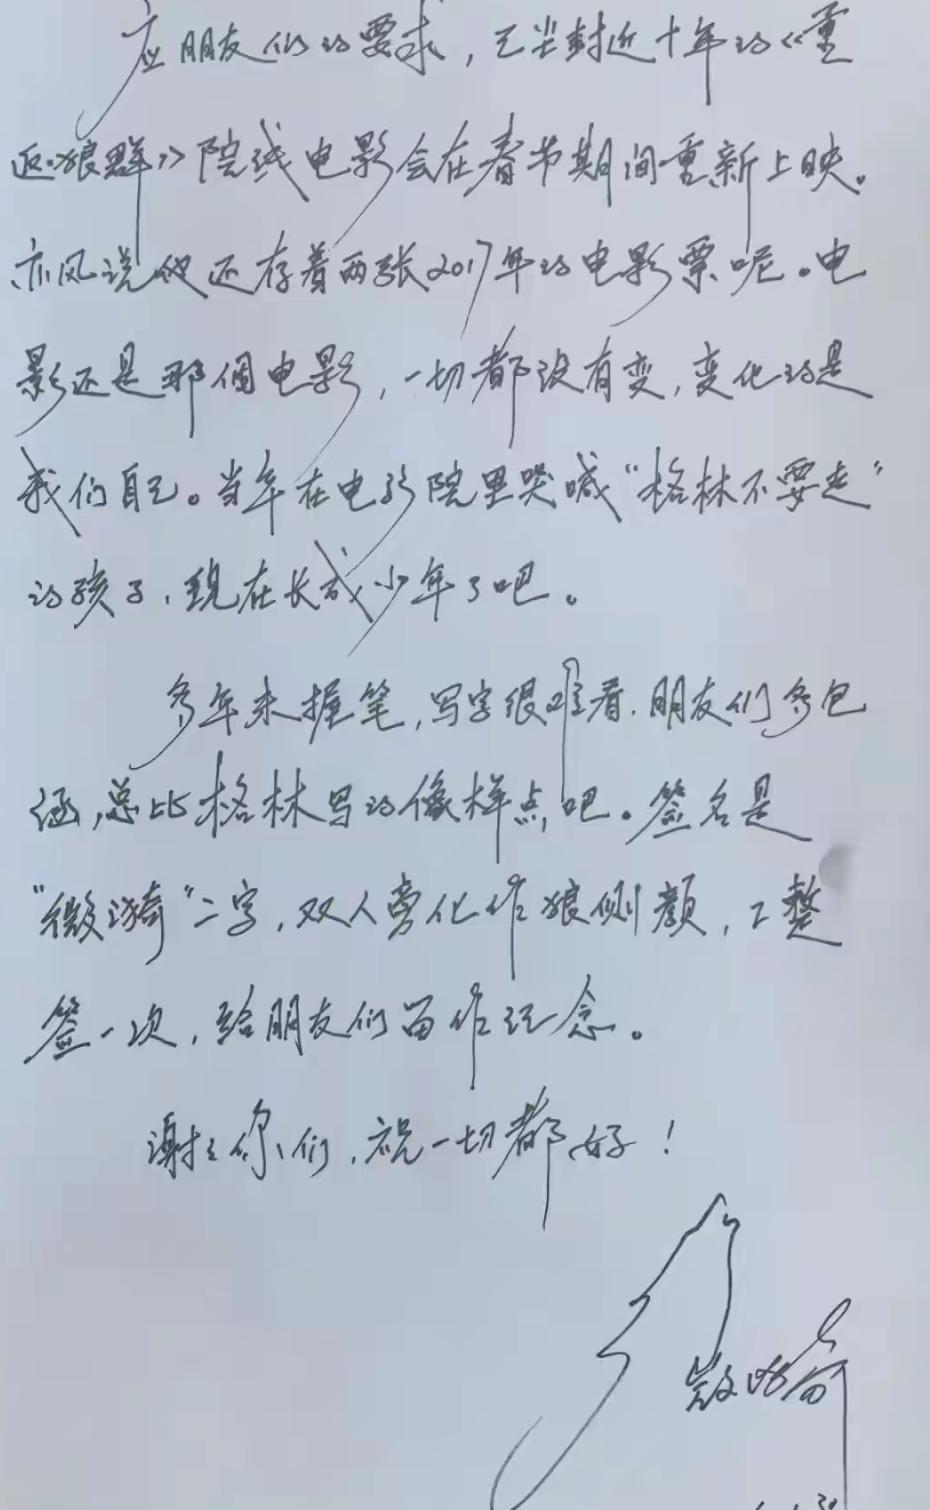 应朋友们的要求，已尘封近十年的《重
返·狼群》院线电影会在春节期间重新上映。
亦风说他还存着两张2017年的电影票呢。电
影还是那个电影，一切都没有变，变化的是
我们自己。当年在电影院里哭喊“格林不要走”
的孩子，现在长成少年了吧。
多年未握笔，写字很难看，朋友们多包
涵，总比格林写的像样点吧。签名是
“微漪”二字，双人旁化作狼侧颜，工整
签一次，给朋友们留作记念。
谢谢你们，祝一切都好！
微漪